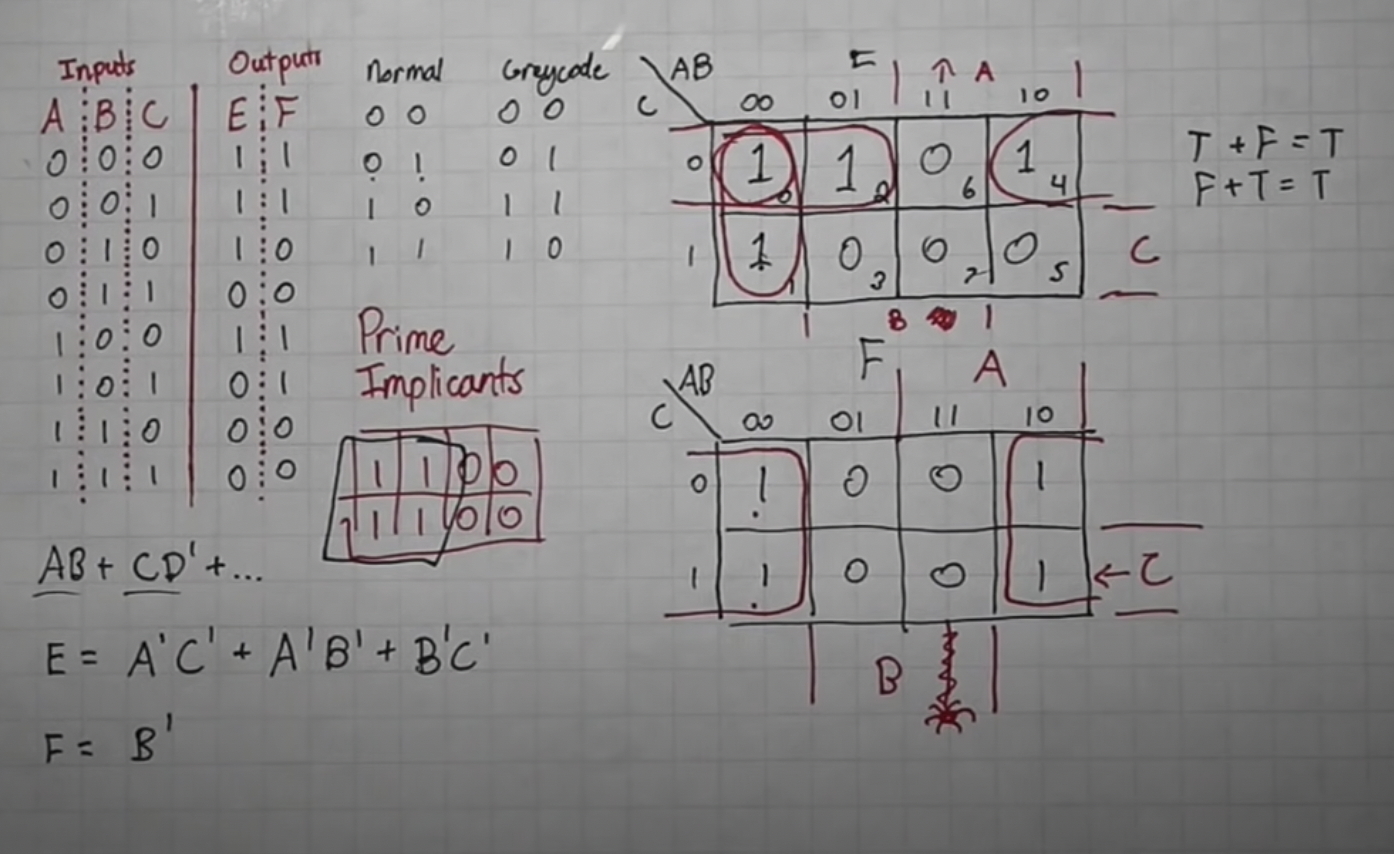 Inputs Outputs
A B C E F
0 0 0 1 1
0 0 1 1 1
0 1 0 1 0
0 1 1 0 0
1 0 0 1 1
1 0 1 0 1
1 1 0 0 0
1 1 1 0 0
Normal Greycode
0 0 0 0
0 1 0 1
1 0 1 1
1 1 1 0
Prime
Implicants
1 1 0 0
1 1 0 0
AB + CD' + ...
E = A'C' + A'B' + B'C'
F = B'
AB E ↑ A
C 00 01 11 10
0 1 0 1 2 0 6 1 4
1 1 1 0 3 0 7 0 5 C
B
T + F = T
F + T = T
AB F A
C 00 01 11 10
0 1 0 0 1
1 1 0 0 1 ← C
B